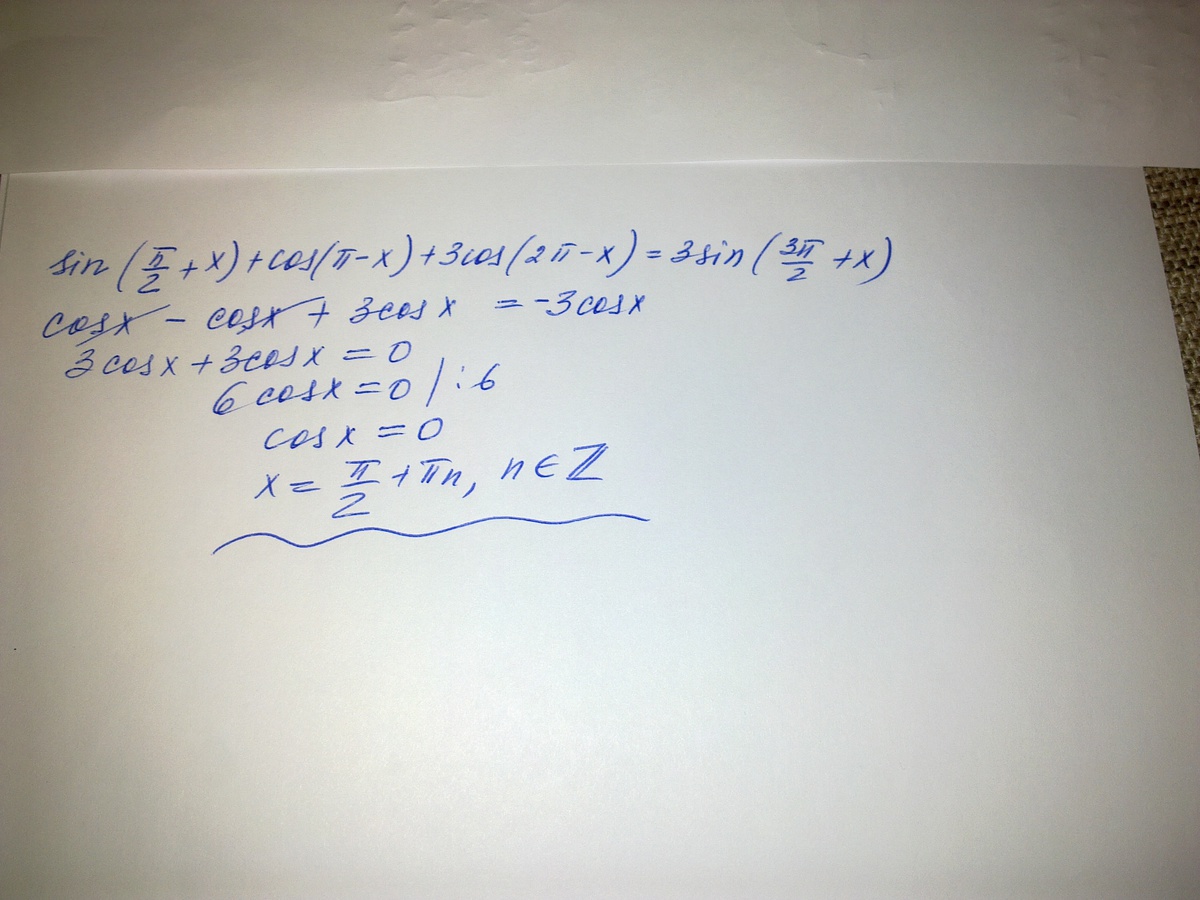 sin(π/2 + x) + cos(π - x) + 3cos(2π - x) = 3sin(3π/2 + x)
cosx - cosx + 3cosx = -3cosx
3cosx + 3cosx = 0
6cosx = 0 / : 6
cosx = 0
x = π/2 + πn, n ∈ ℤ